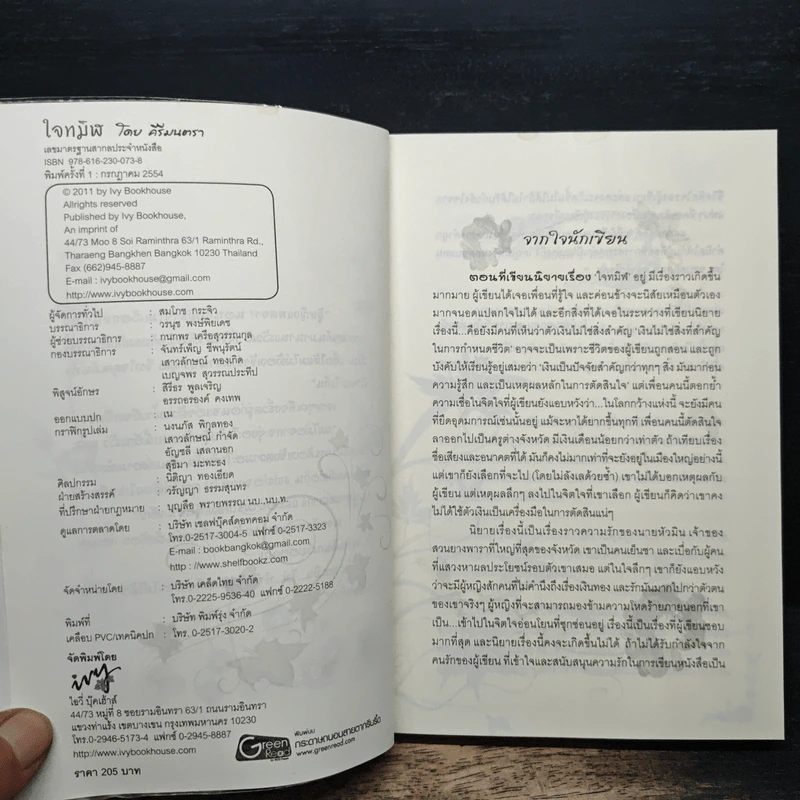 ใจทมิฬ โดย คีรีมนตรา
เลขมาตรฐานสากลประจำหนังสือ
ISBN 978-616-230-073-8
พิมพ์ครั้งที่ 1 : กรกฎาคม 2554
© 2011 by Ivy Bookhouse
Allrights reserved
Published by Ivy Bookhouse,
An imprint of
44/73 Moo 8 Soi Raminthra 63/1 Raminthra Rd.,
Tharaeng Bangkhen Bangkok 10230 Thailand
Fax (662)945-8887
E-mail : ivybookhouse@gmail.com
http://www.ivybookhouse.com
ผู้จัดการทั่วไป : สมโภช กระจิว
บรรณาธิการ : วรนุช พงษ์พิยเดช
ผู้ช่วยบรรณาธิการ : กนกพร เครือสุวรรณกุล
กองบรรณาธิการ : จันทร์เพ็ญ ชีพนุรัตน์
เสาวลักษณ์ ทองเกิด
เบญจพร สุวรรณประทีป
พิสูจน์อักษร : สิรีธร พูลเจริญ
อรรถอรองค์ คงเทพ
ออกแบบปก : เน
กราฟิกรูปเล่ม : นงนภัส พิกุลทอง
เสาวลักษณ์ กำจัด
อัญชลี เสลานอก
สุธิมา มะทะธง
ศิลปกรรม : นิติญา ทองเอียด
ฝ่ายสร้างสรรค์ : วรัญญา ธรรมสุนทร
ที่ปรึกษาฝ่ายกฎหมาย : บุญลือ พรายพรรณ นบ.,นบ.ท.
ดูแลการตลาดโดย : บริษัท เชลฟบุ๊คส์ดอทคอม จำกัด
โทร.0-2517-3004-5 แฟกซ์ 0-2517-3323
E-mail : bookbangkok@gmail.com
http : //www.shelfbookz.com
จัดจำหน่ายโดย : บริษัท เคล็ดไทย จำกัด
โทร.0-2225-9536-40 แฟกซ์ 0-2222-5188
พิมพ์ที่ : บริษัท พิมพ์รุ่ง จำกัด
เคลือบ PVC/เทคนิคปก : โทร. 0-2517-3020-2
จัดพิมพ์โดย
ivy
ไอวี่ บุ๊คเฮ้าส์
44/73 หมู่ที่ 8 ซอยรามอินทรา 63/1 ถนนรามอินทรา
แขวงท่าแร้ง เขตบางเขน กรุงเทพมหานคร 10230
โทร.0-2946-5173-4 แฟกซ์ 0-2945-8887
http://www.ivybookhouse.com
ราคา 205 บาท
Green Read
พิมพ์บน
กระดาษถนอมสายตากรีนรี้ด
www.greenread.com
จากใจนักเขียน
ตอนที่เขียนนิยายเรื่อง 'ใจทมิฬ' อยู่ มีเรื่องราวเกิดขึ้น
มากมาย ผู้เขียนได้เจอเพื่อนที่รู้ใจ และค่อนข้างจะนิสัยเหมือนตัวเอง
มากจนอดแปลกใจไม่ได้ และอีกสิ่งที่ได้เจอในระหว่างที่เขียนนิยาย
เรื่องนี้...คือยังมีคนที่เห็นว่าตัวเงินไม่ใช่สิ่งสำคัญ 'เงินไม่ใช่สิ่งที่สำคัญ
ในการกำหนดชีวิต' อาจจะเป็นเพราะชีวิตของผู้เขียนถูกสอน และถูก
บังคับให้เรียนรู้อยู่เสมอว่า 'เงินเป็นปัจจัยสำคัญกว่าทุกๆ สิ่ง มันมาก่อน
ความรู้สึก และเป็นเหตุผลหลักในการตัดสินใจ' แต่เพื่อนคนนี้ตอกย้ำ
ความเชื่อในจิตใจที่ผู้เขียนยังแอบหวังว่า...ในโลกกว้างแห่งนี้ จะยังมีคน
ที่ยึดอุดมการณ์เช่นนั้นอยู่ แม้จะหาได้ยากขึ้นทุกที เพื่อนคนนี้ตัดสินใจ
ลาออกไปเป็นครูต่างจังหวัด มีเงินเดือนน้อยกว่าเท่าตัว ถ้าเทียบเรื่อง
ชื่อเสียงและอนาคตที่ได้ มันก็คงไม่มากเท่าที่จะยังอยู่ในเมืองใหญ่อย่างนี้
แต่เขาก็ยังเลือกที่จะไป (โดยไม่ลังเลด้วยซ้ำ) เขาไม่ได้บอกเหตุผลกับ
ผู้เขียน แต่เหตุผลลึกๆ ลงไปในจิตใจที่เขาเลือก ผู้เขียนก็คิดว่าเขาคง
ไม่ได้ใช้ตัวเงินเป็นเครื่องมือในการตัดสินแน่ๆ
นิยายเรื่องนี้เป็นเรื่องราวความรักของนายหัวมิน เจ้าของ
สวนยางพาราที่ใหญ่ที่สุดของจังหวัด เขาเป็นคนเย็นชา และเบื่อกับผู้คน
ที่แสวงหาผลประโยชน์รอบตัวเขาเสมอ แต่ในใจลึกๆ เขาก็ยังแอบหวัง
ว่าจะมีผู้หญิงสักคนที่ไม่คำนึงถึงเรื่องเงินทอง และรักมันมากไปกว่าตัวตน
ของเขาจริงๆ ผู้หญิงที่จะสามารถมองข้ามความโหดร้ายภายนอกที่เขา
เป็น...เข้าไปในจิตใจอ่อนโยนที่ซุกซ่อนอยู่ เรื่องนี้เป็นเรื่องที่ผู้เขียนชอบ
มากที่สุด และนิยายเรื่องนี้คงจะเกิดขึ้นไม่ได้ ถ้าไม่ได้รับกำลังใจจาก
คนรักของผู้เขียน ที่เข้าใจและสนับสนุนความรักในการเขียนหนังสือเป็น